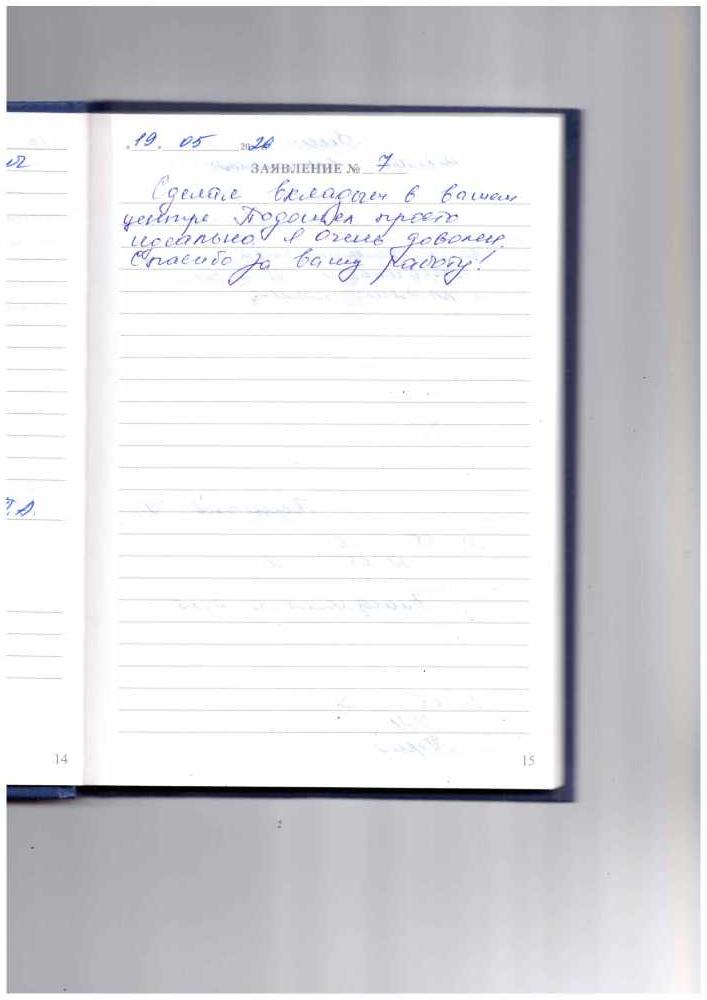 19. 05 2020
ЗАЯВЛЕНИЕ № 7
Сделал вкладыш в вашем
центре. Подошел просто
идеально. Я очень доволен.
Спасибо за вашу работу!
14
15